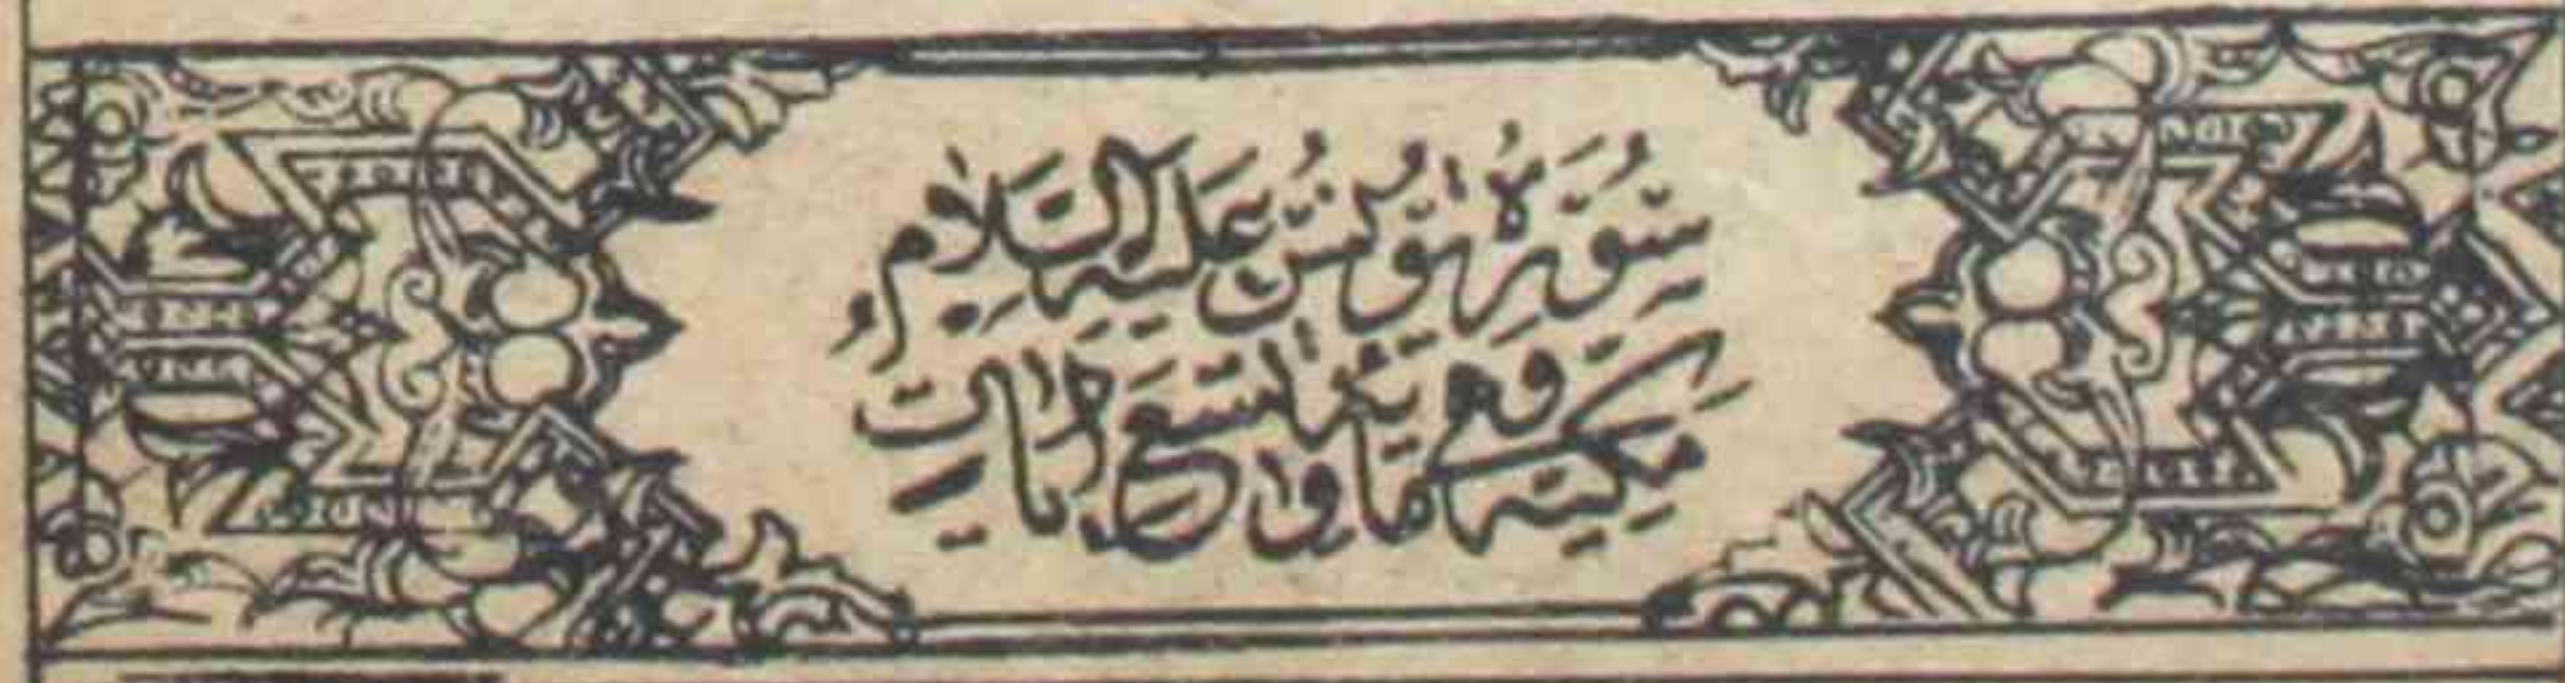 سُوْرَةُ يُوْنُسَ عَلَيْهِ السَّلَامُ
مَكِّيَّة وهي مائة وتسع ايات